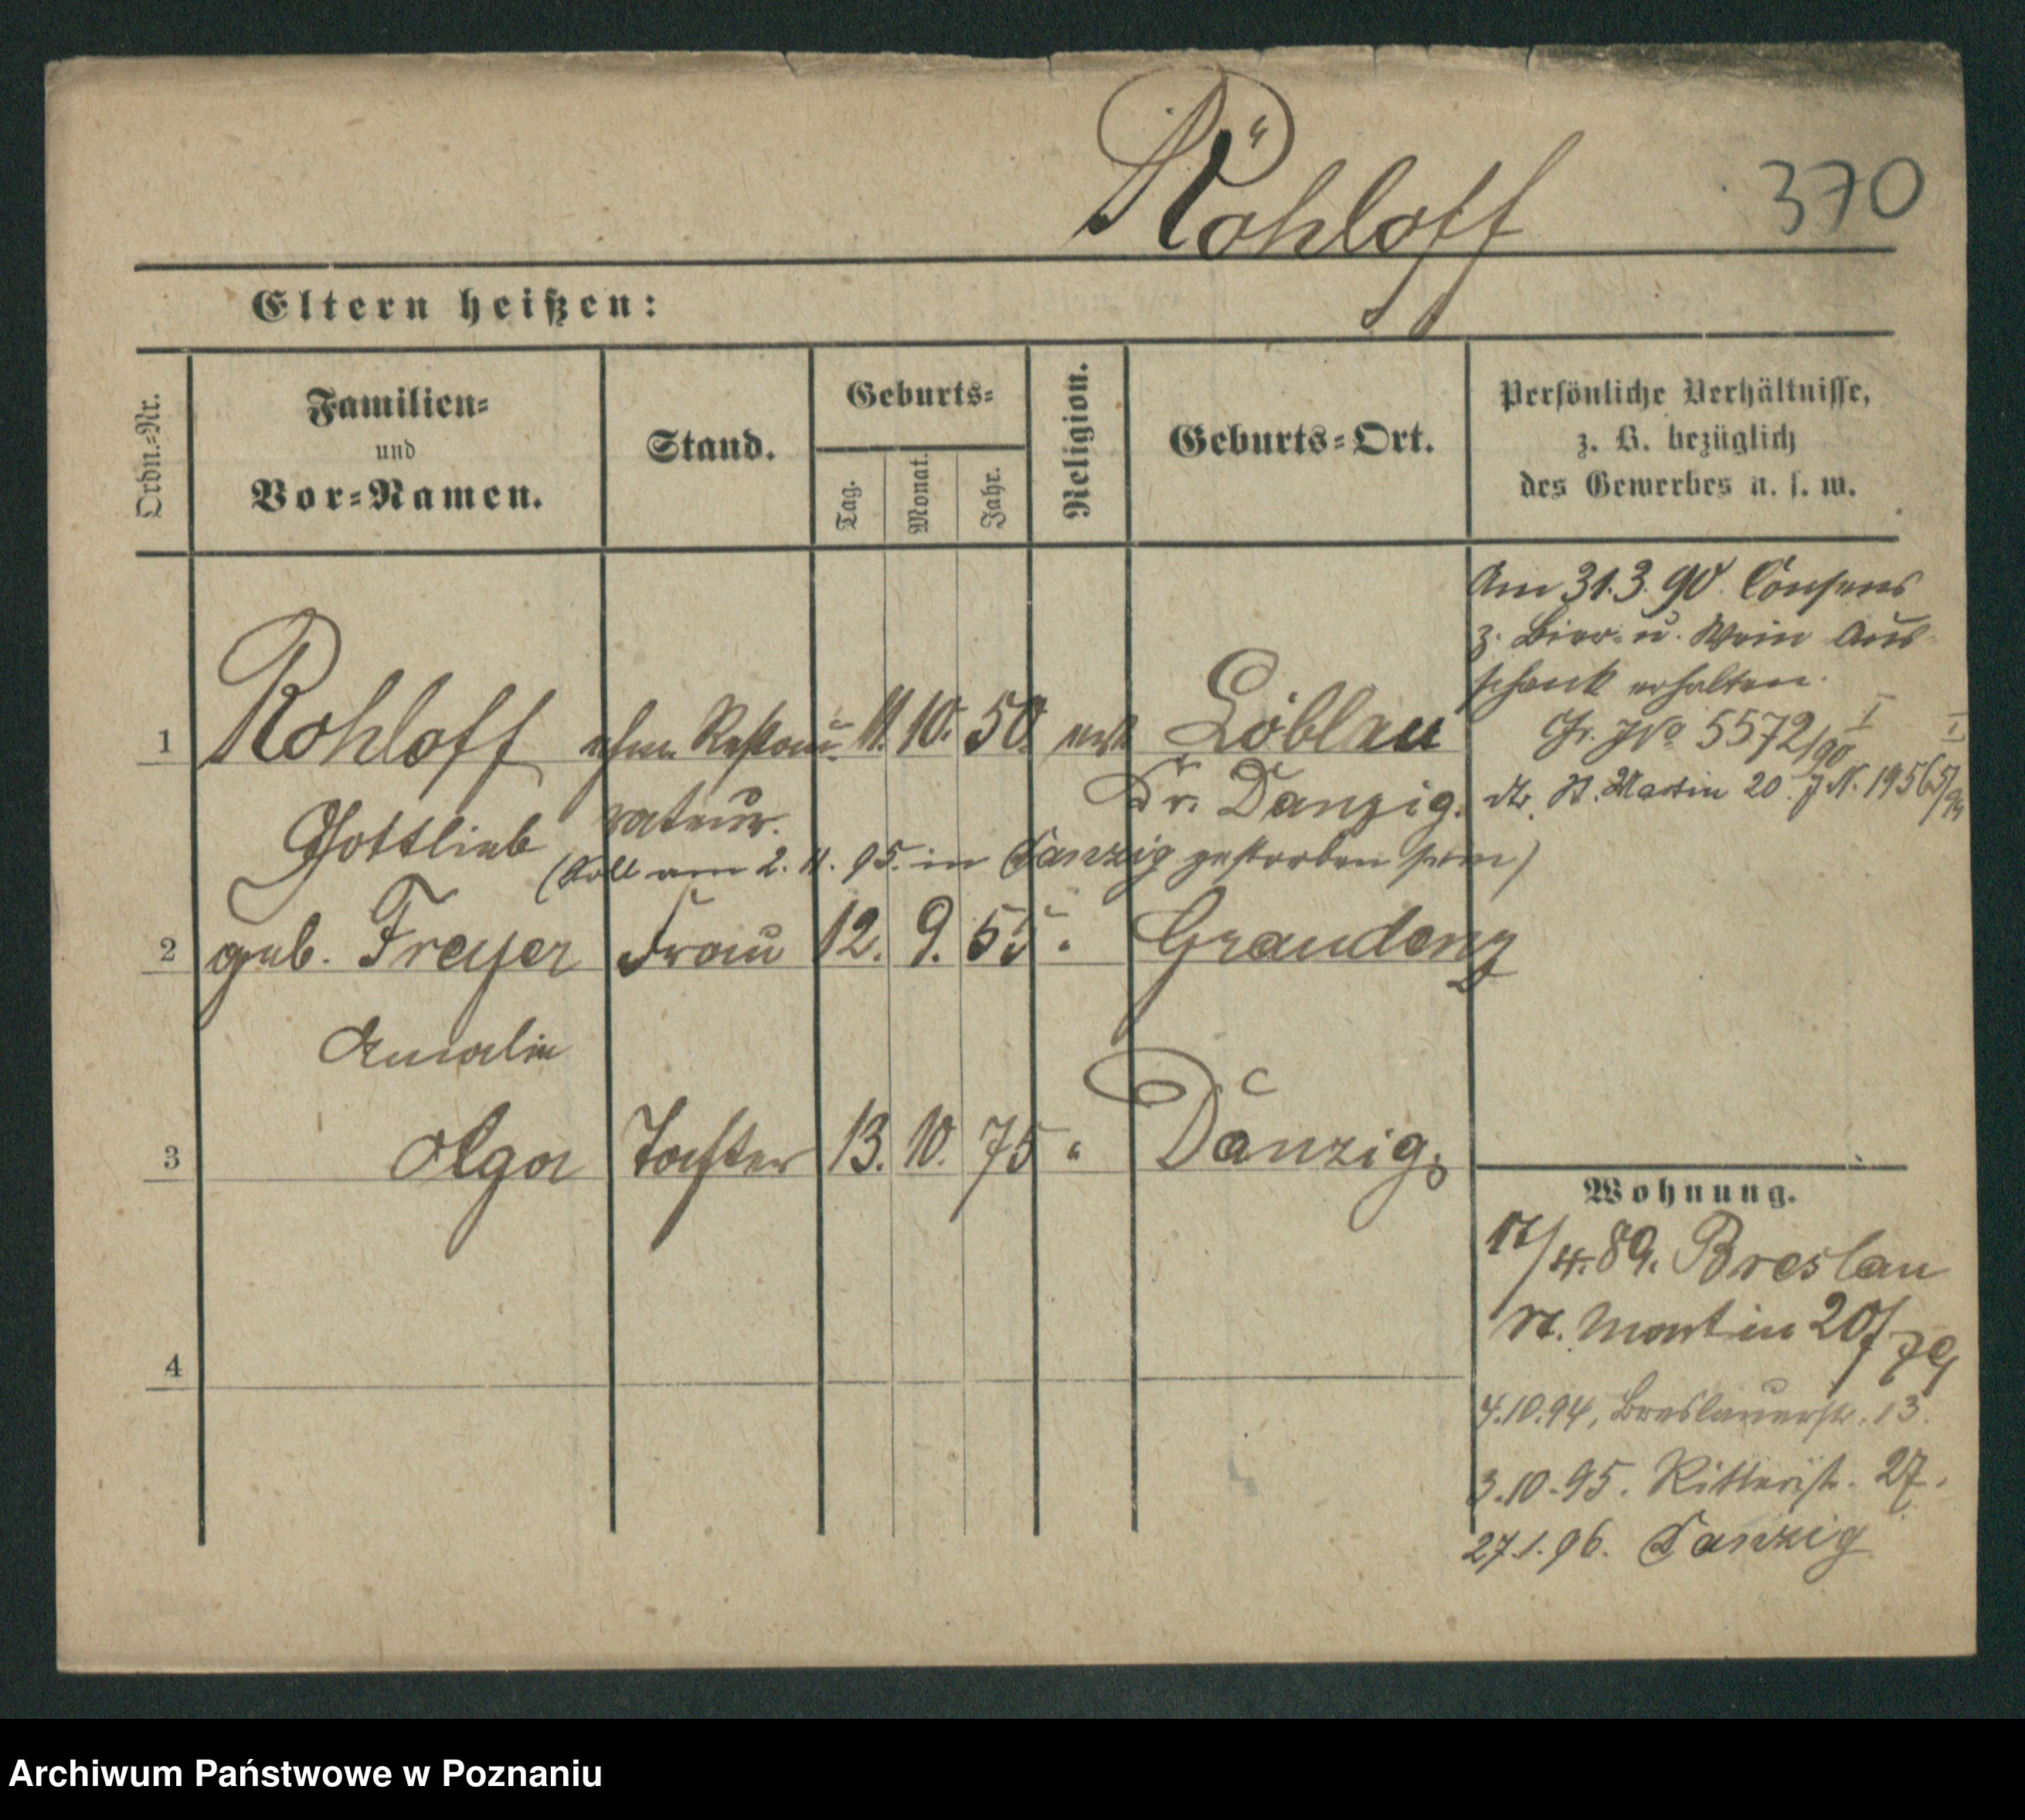 Rohloff
370
Eltern heißen:
Ordn.-Nr.
Familien-
und
Vor-Namen.
Stand.
Geburts-
Tag.
Monat.
Jahr.
Religion.
Geburts-Ort.
Persönliche Verhältnisse,
z. B. bezüglich
des Gewerbes u. s. w.
Am 31.3.90 Consens
z. Bier- u. Wein Aus-
schank erhalten.
J. No 5572/90 I
St. Martin 20 J. N. 19565/94 I
1 Rohloff ehem. Restau- 11. 10. 50. Löblau
Gottlieb rateur. Kr. Danzig.
(Soll am 2. 11. 95. in Danzig gestorben sein)
2 geb. Freyer Frau 12. 9. 55 " Graudenz
Amalie
3 Olga Tochter 13. 10. 75 " Danzig.
4
Wohnung.
17/4. 89. Breslau
St. Martin 20
4.10.94, Breslauerstr. 13.
3.10.95. Ritterst. 27.
27.1.96. Danzig
Archiwum Państwowe w Poznaniu